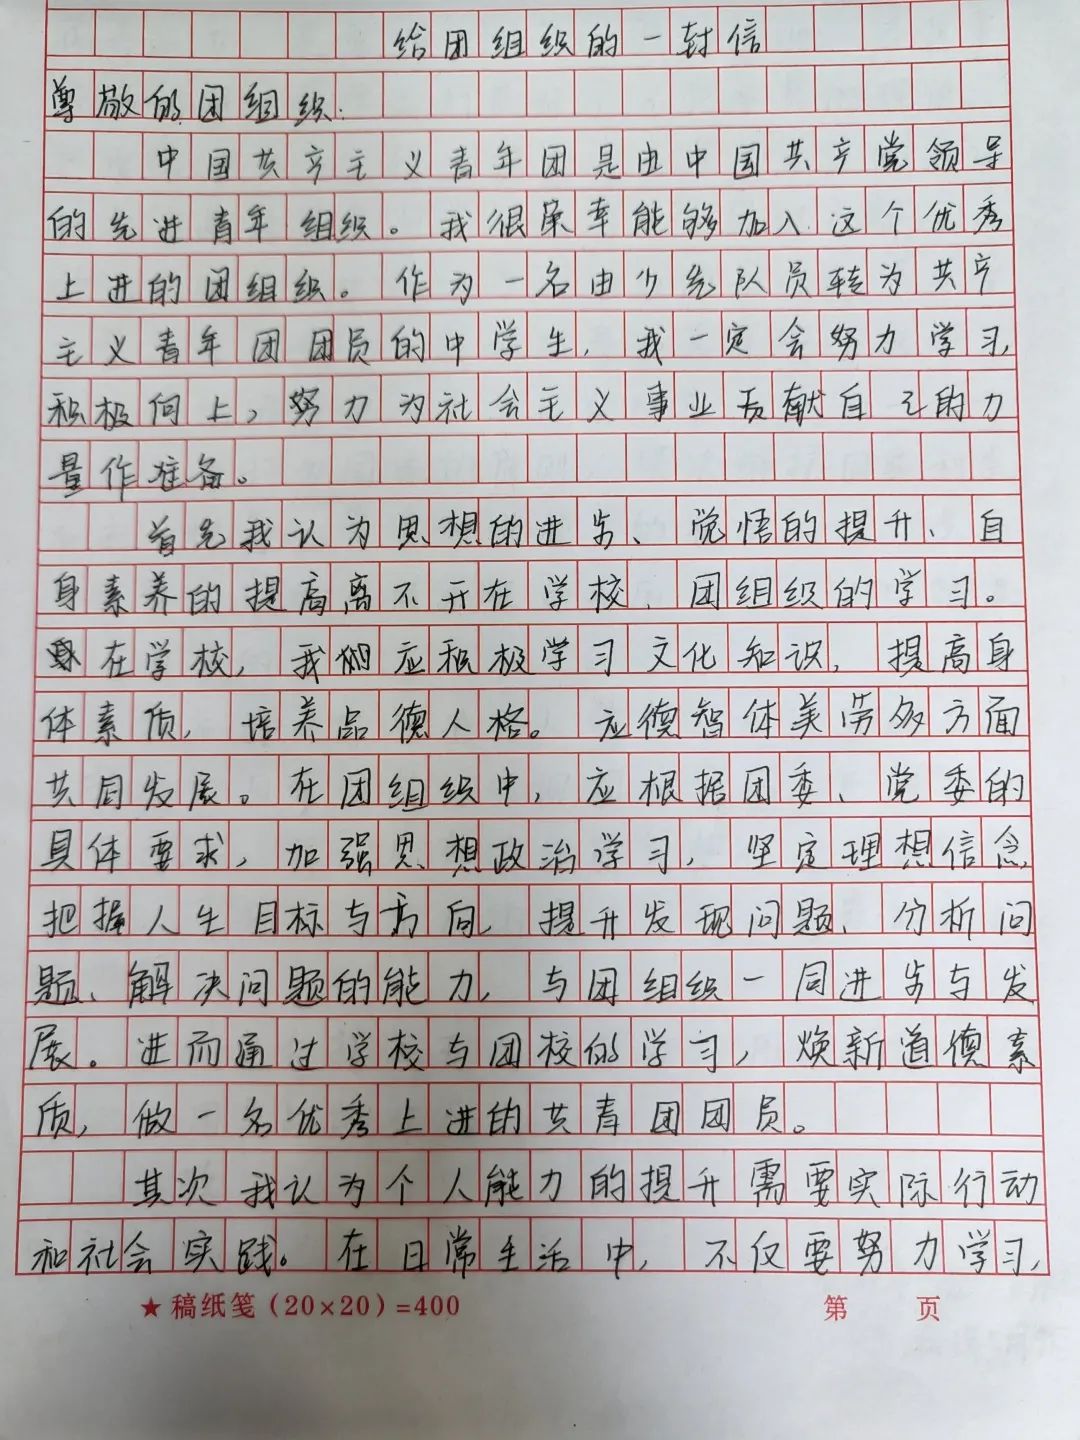 给团组织的一封信
尊敬的团组织:
中国共产主义青年团是由中国共产党领导
的先进青年组织。我很荣幸能够加入这个优秀
上进的团组织。作为一名由少先队员转为共产
主义青年团团员的中学生,我一定会努力学习,
积极向上,努力为社会主义事业贡献自己的力
量作准备。
首先我认为思想的进步、觉悟的提升、自
身素养的提高离不开在学校、团组织的学习。
在学校,我们应积极学习文化知识,提高身
体素质,培养品德人格。应德智体美劳多方面
共同发展。在团组织中,应根据团委、党委的
具体要求,加强思想政治学习,坚定理想信念
把握人生目标与方向,提升发现问题、分析问
题、解决问题的能力,与团组织一同进步与发
展。进而通过学校与团校的学习,焕新道德素
质,做一名优秀上进的共青团团员。
其次我认为个人能力的提升需要实际行动
和社会实践。在日常生活中,不仅要努力学习,
★稿纸笺(20×20)=400 第 页